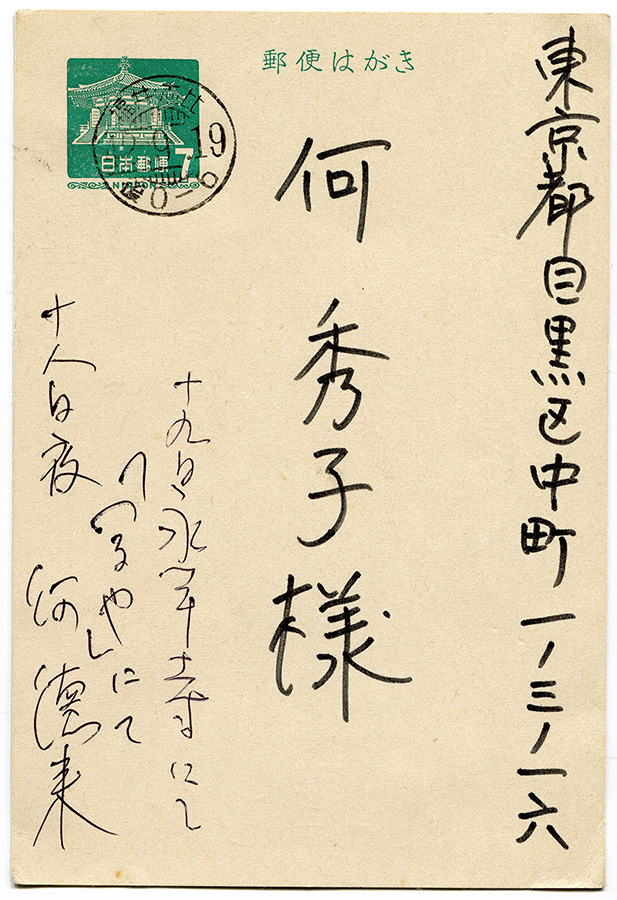 東京都目黒区中町一ノ三ノ一六
郵便はがき
何秀子様
日本郵便 7
NIPPON
19
十九日永平寺にて
「つるや」にて
十八日夜 何德来